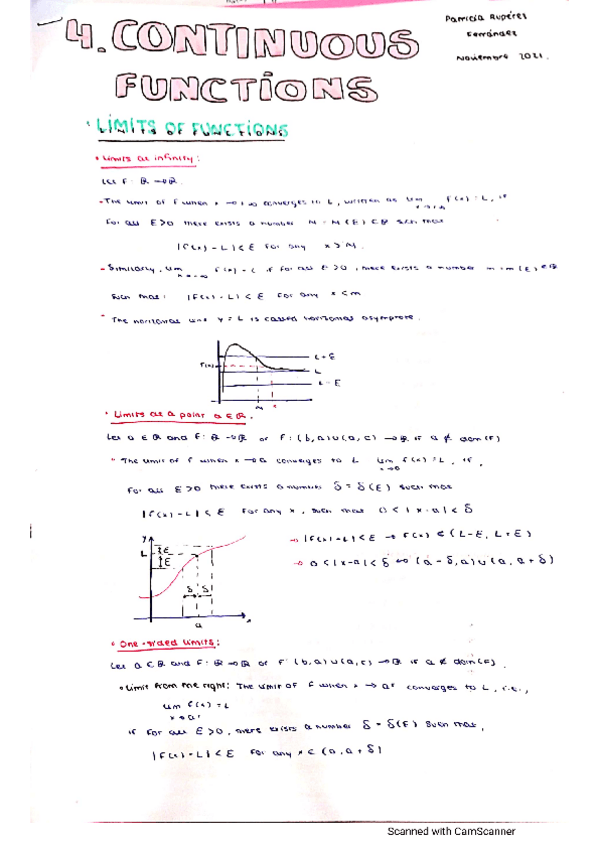 4. CONTINUOUS
FUNCTIONS
Patricia Rupérez
Fernández
Noviembre 2021.
LIMITS OF FUNCTIONS
• Limits at infinity:
Let F: ℝ → ℝ.
- The limit of F when x → +∞ converges to L, written as lim x→+∞ F(x) = L, if
For all ε > 0 there exists a number M = M(ε) ∈ ℝ such that
|F(x) - L| < ε for any x > M.
- Similarly, lim x→-∞ F(x) = L if for all ε > 0, there exists a number m = m(ε) ∈ ℝ
such that: |F(x) - L| < ε for any x < m
- The horizontal line y = L is called horizontal asymptote.
F(x)
L + ε
L
L - ε
M
x
• Limits at a point a ∈ ℝ.
Let a ∈ ℝ and F: ℝ → ℝ or F: (b,a) ∪ (a,c) → ℝ if a ∉ dom(F)
• The limit of F when x → a converges to L lim x→a F(x) = L, if,
For all ε > 0 there exists a number δ = δ(ε) such that
|F(x) - L| < ε for any x, such that 0 < |x - a| < δ
y
L
ε
ε
δ δ
a
x
→ |F(x) - L| < ε → F(x) ∈ (L - ε, L + ε)
→ 0 < |x - a| < δ ⇔ (a - δ, a) ∪ (a, a + δ)
• One-sided limits:
Let a ∈ ℝ and F: ℝ → ℝ or F: (b,a) ∪ (a,c) → ℝ if a ∉ dom(F).
• Limit from the right: The limit of F when x → a⁺ converges to L, i.e.,
lim F(x) = L
x → a⁺
if for all ε > 0, there exists a number δ = δ(ε) such that,
|F(x) - L| < ε for any x ∈ (a, a + δ)
Scanned with CamScanner